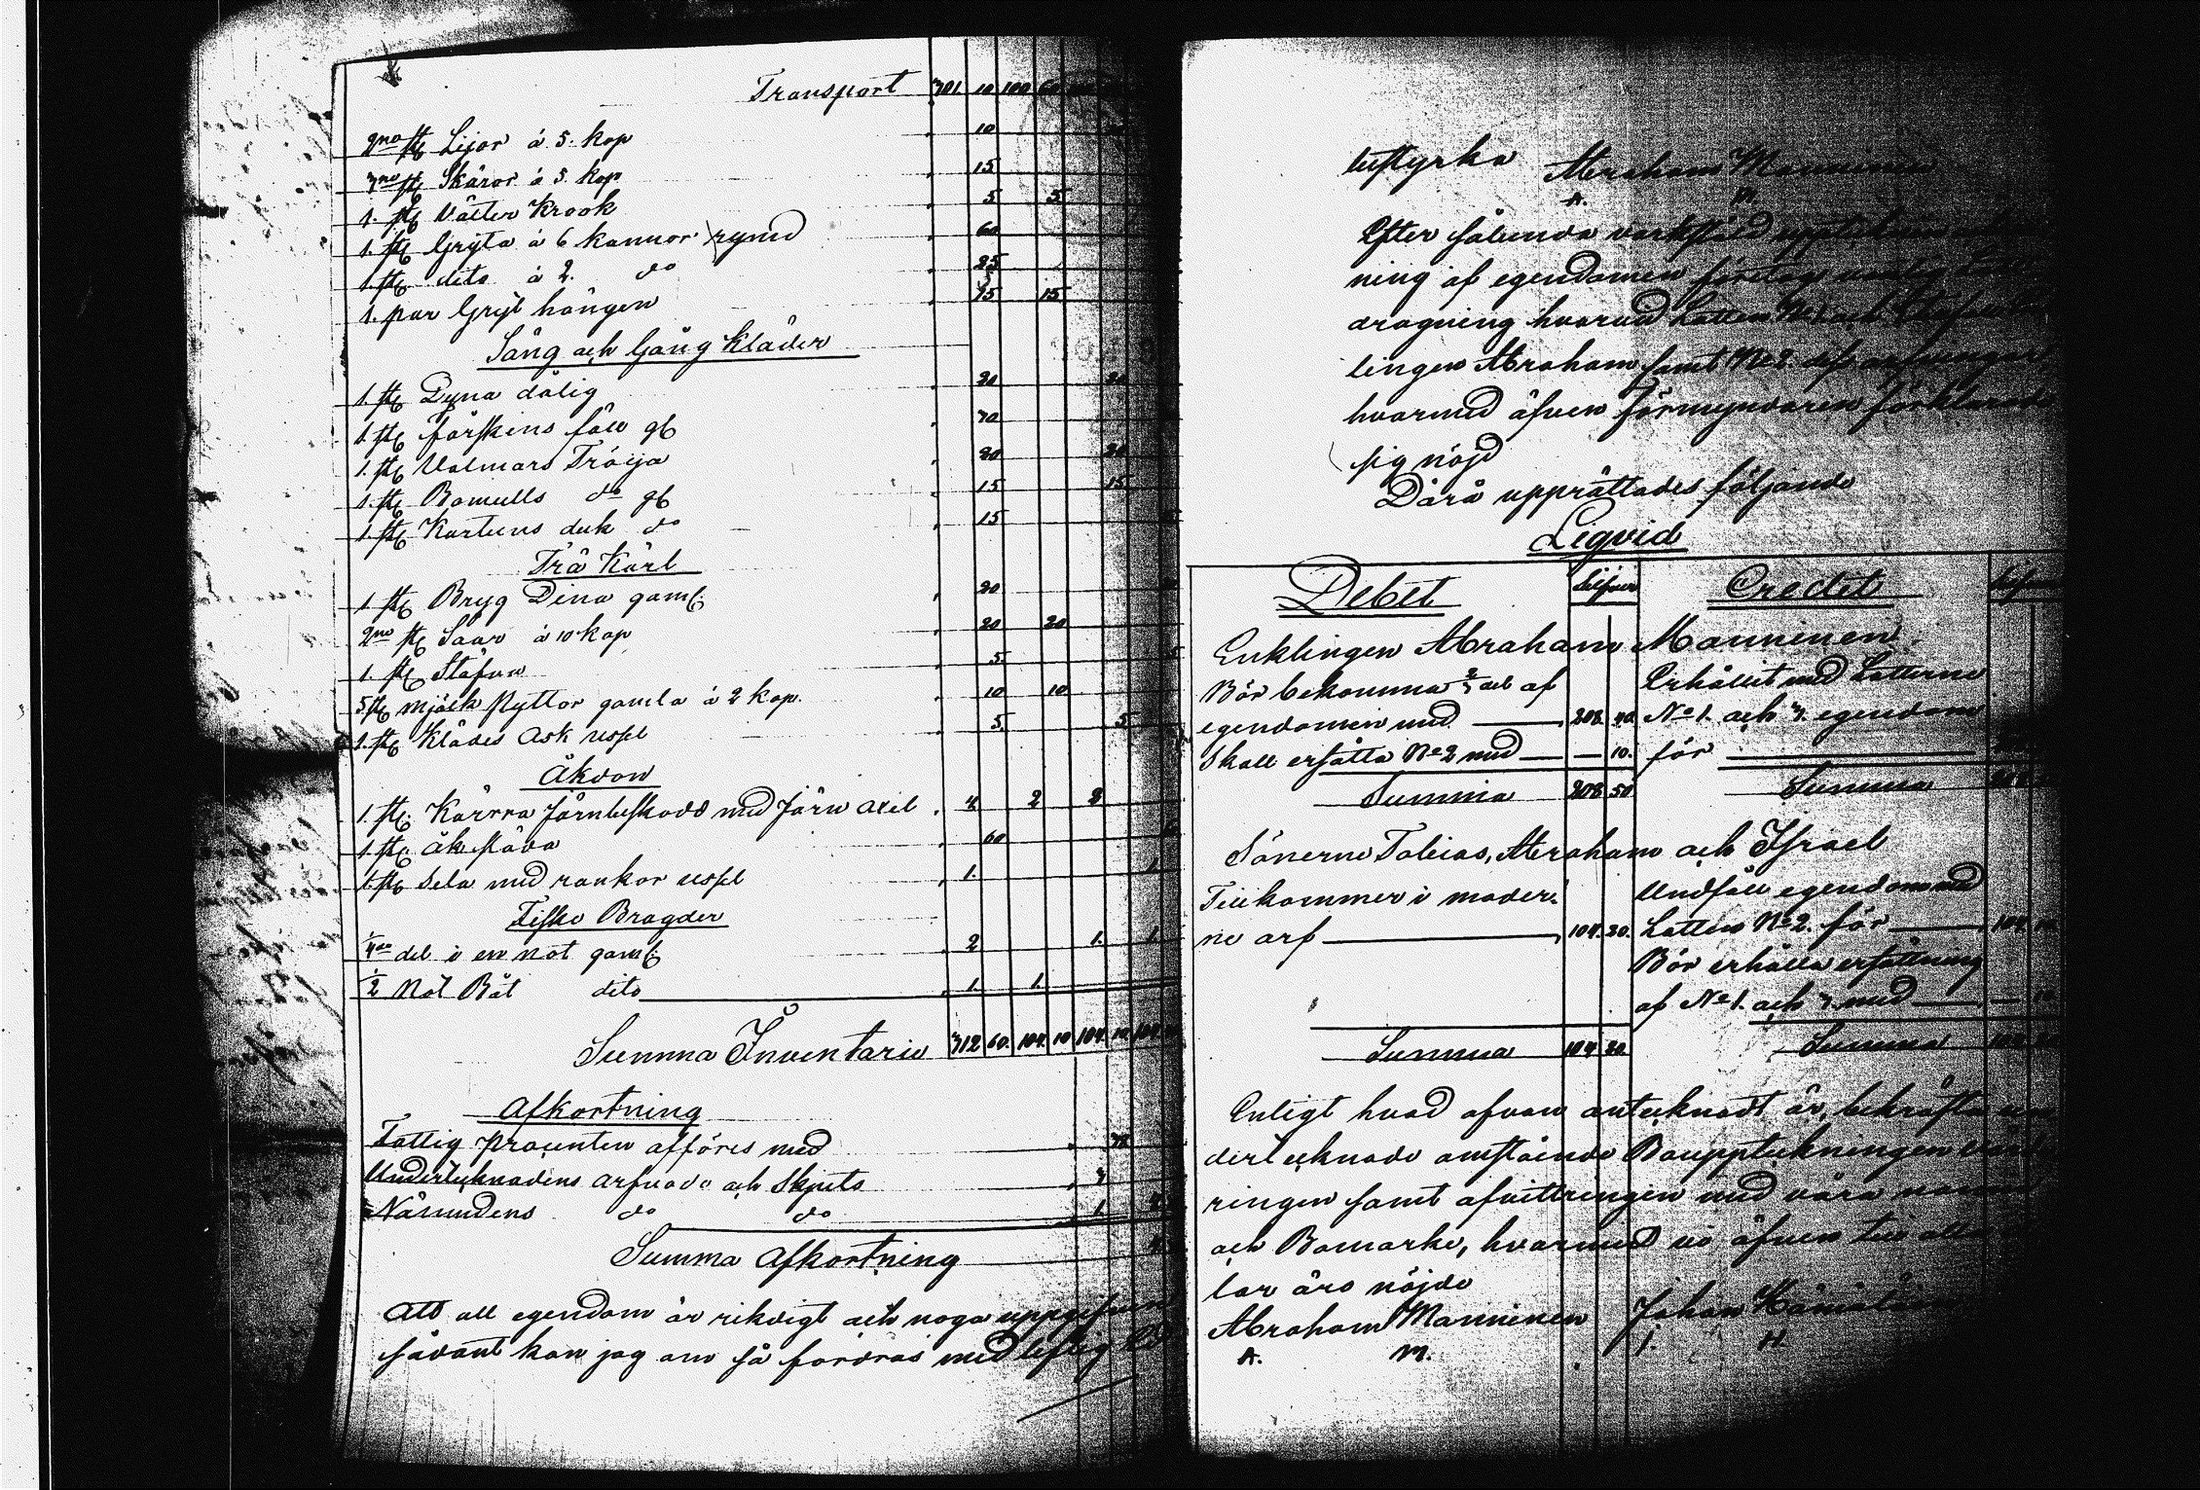 Transport 301 10 100 60
2ne st Lijor á 5. kop 10
3ne st Skäror á 5 kop 15
1. st Vätter Krook 5 5
1. st Gryta á 6 kannor rymd 60
1 st dito á 2. do 25
1. par Gryt hängen 15 15
Säng och Gång Kläder
1. st Dyna dålig 20 20
1. st fårskins fäll gl 70
1. st Valmars Tröija 20 20
1. st Bomulls do gl 15 15
1 st Kartuns duk do 15
Trä Kärl
1. st Bryg Tina gaml: 20
2ne st Såar á 10 kop 20 20
1. st Stäfva 5
5. st mjölk Byttor gamla á 2 kop. 10 10
1. st Klädes Ask ussel 5 5
Åkdon
1. st. Kärra Järnbeskodd med Järn axel 4 2 2
1. st. åk släda 60
1. st Sela med rankor ussel 1. 1
Fiske Bragder
1/4de del i en not gaml: 2 1. 1
1/2 Not Båt dito 1. 1.
Summa Inventarie 312 60 104 10 104 10 104
Afkortning
Fattig procenten afföres med
Undertecknadens arfvode och Skjuts
Nämndens do do 1
Summa Afkortning
Att all egendom är riktigt och noga uppgifven
sådant kan jag om så fordras med liflig Ed
bestyrka Abraham Manninen
A. M.
Efter sålunda verkstäld uppteckning
ning af egendomen företogs
dragning hvarvid Lotten No 1 och
lingen Abraham samt No 2. dess arfvingar
hvarmed äfven förmyndaren förklarade
sig nöjd
Därå upprättades följande
Liqvid
Debet Silfver Credit Silfver
Enklingen Abraham Manninen
Bör bekomma 2/3 del af Erhållit med Lotterne
egendomen med 208. 40. No 1. och 3. egendom
Skall ersätta No 2 med — 10. för
Summa 208 50 Summa
Sönerne Tobias, Abraham och Israel
Tillkommer i moder: Undfått egendom med
ne arf 104. 20. Lotten No 2. för 104. 10
Bör erhålla ersättning
af No 1. och 3. med — 10
Summa 104 20 Summa 104 20
Enligt hvad ofvan antecknadt är, bekräfta un
dertecknade omstående Bouppteckningen
ringen samt afvittringen med våra namn
och Bomärke, hvarmed vi äfven till alla
lar äro nöjde
Abraham Manninen Johan Hämäläinen
A. M. J. H.